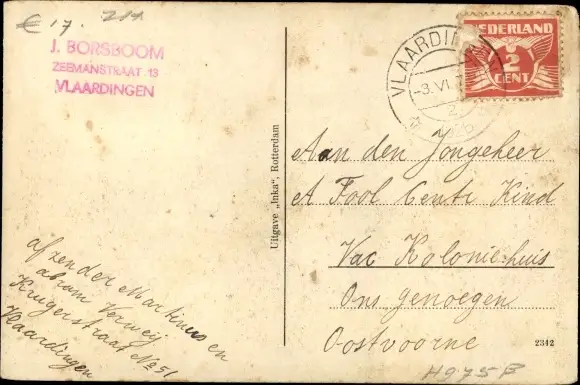 € 17. 211
J. BORSBOOM
ZEEMANSTRAAT 13
VLAARDINGEN
VLAARDINGEN
-3.VI.
NEDERLAND
2
CENT
Uitgave „Inka”, Rotterdam
Aan den Jongeheer
A Fool Centr Kind
Vac Koloniehuis
Ons genoegen
Oostvoorne
afzender Martinus en
abram Verweij
Krugerstraat No 51
Vlaardingen
2312
H975B